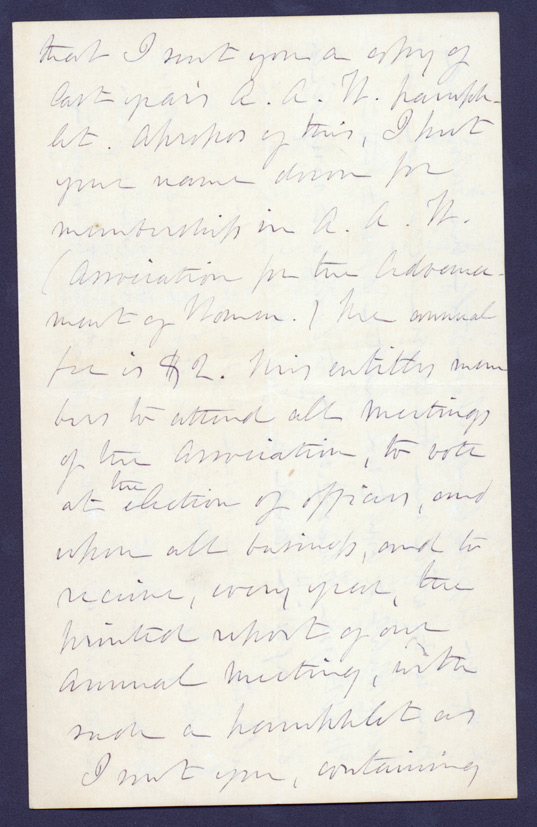 that I sent you a copy of
last year's A. A. W. pamph-
let. Apropos of this, I put
your name down for
membership in A. A. W.
(Association for the Advance-
ment of Women.) The annual
fee is $2. This entitles mem
bers to attend all meetings
of the Association, to vote
at the election of officers, and
upon all business, and to
receive, every year, the
printed report of our
annual meeting, with
such a pamphlet as
I sent you, containing